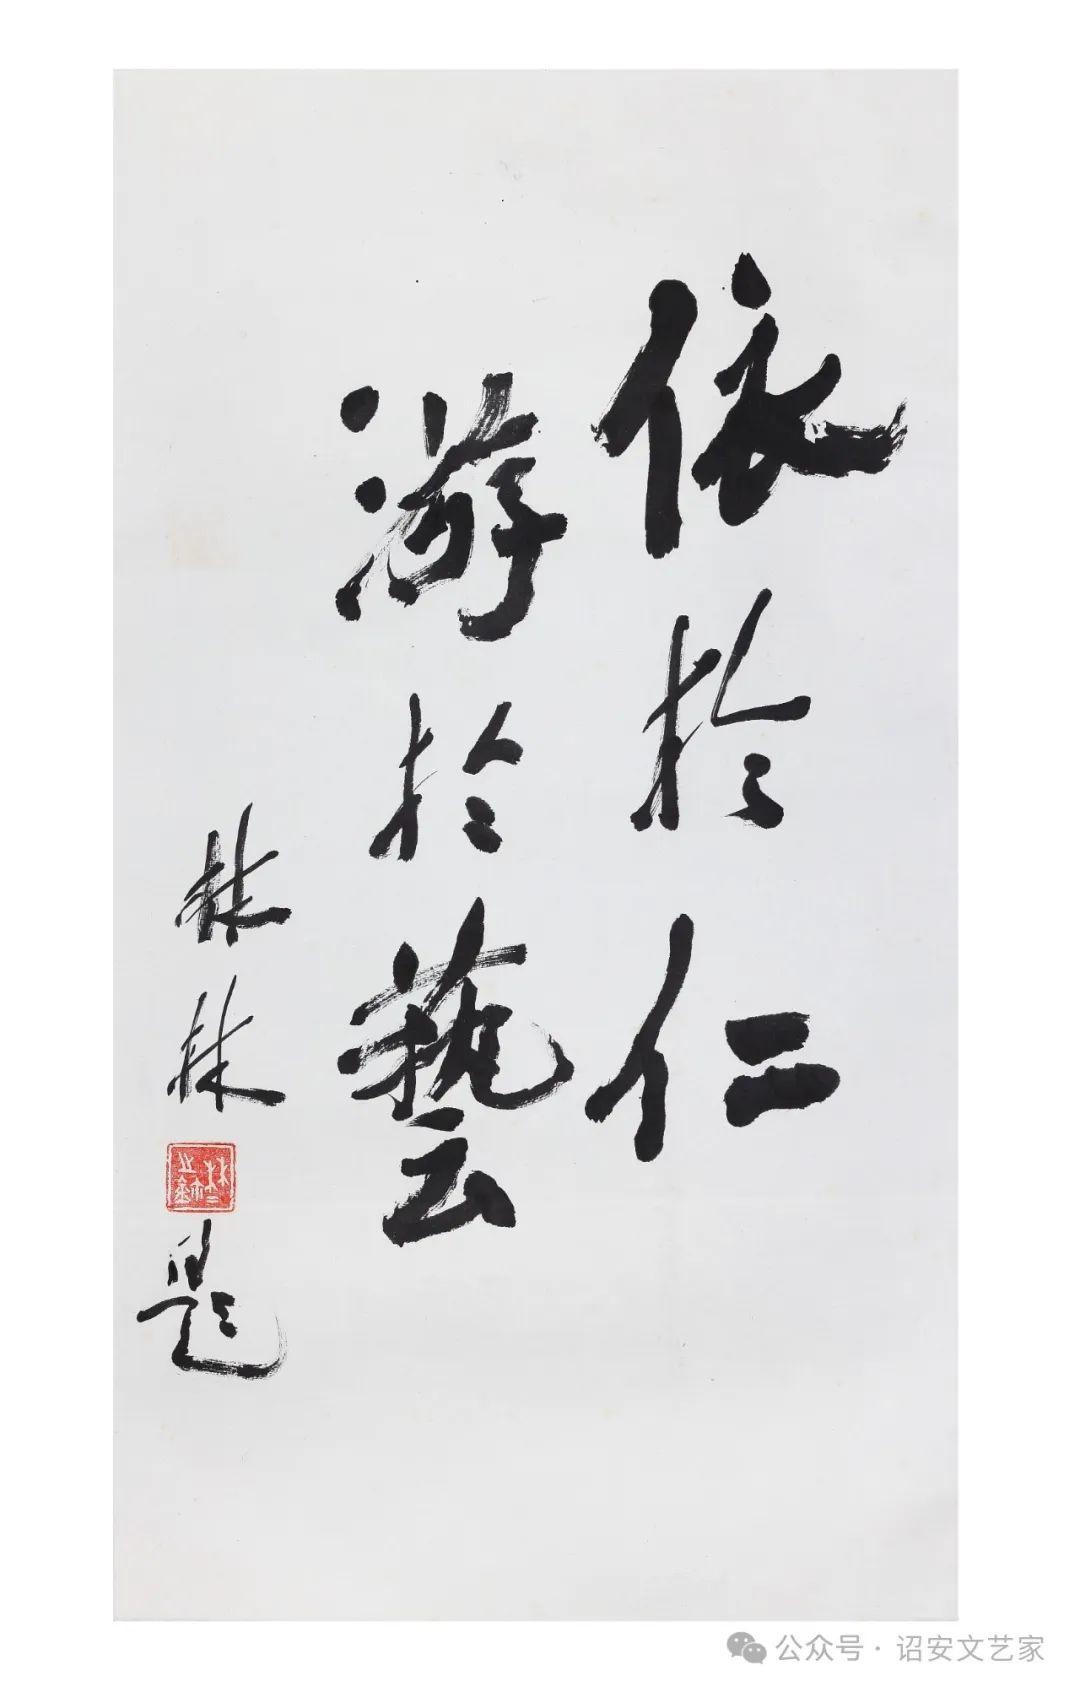 依於仁
游於藝
林林
題
公众号·诏安文艺家